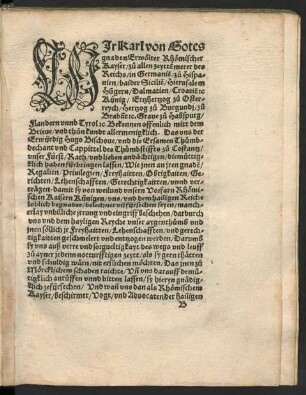 WIr Karl von Gotes
gnaden Erwölter Rhömischer
Kayser / zů allen zeyttē merer des
Reichs / in Germanie zů Hispa-
nien / baider Sicilie / Hierusalem
Hūgern / Dalmatien / Croatie ꝛc
Künig / Ertzherzog zů Oster-
reych / Hertzog zů Burgundi / zů
Brabāt ꝛc. Graue zů Habspurg /
Flandern vnnd Tyrol ꝛc. Bekennen offenlich mit dem
Brieue / vnd thůn kunde allermenigklich. Das vns der
Erwirdig Hugo Bischoue / vnd die Ersamen Thůmb
dechant vnd Cappittel des Thůmbstiffts zů Costantz /
vnser Fürst / Rath / vnd lieben andächtigen / diemüttig
klich haben fürbringen lassen. Wie jnen an jren gnadē /
Regalien / Priuilegien / Freyhaitten / Obrigkaiten / Ge-
richten / Lehenschafften / Gerechtigkaitten / vnnd ver-
trägen / so jnen von weilund vnsern Vorfarn Rhömi-
schen Kaysern Künigen / vns / vnd dem hailigen Reiche
loblich begnabet / verlichen vnd

cherlay vnbillich jrrung vnd eingriff beschehen / dardurch
vns vnd dem hayligen Reyche vnser aygenthůmb / vnd
jnen söllich jr Freyhaitten / Lehenschafften / vnd gerech
tigkaitten geschmelert vnd entzogen werden

zů ayner jedem notturfftigen zeyt / als sy zů gen thätten
vnd schuldig wärn / nit ersůchen möchten / Das jnen zů
Mörcklichem schaden raichte / Vñ vns darauff demü-
tigklich anrüffen vnnd bitten lassen / sy hieryn gnädig-
klich zefürsehen / Vnd wañ vns dan als Rhömischem
Kayser / Beschirmer / Vogt / vnd Aduocaten der Hailigen
B